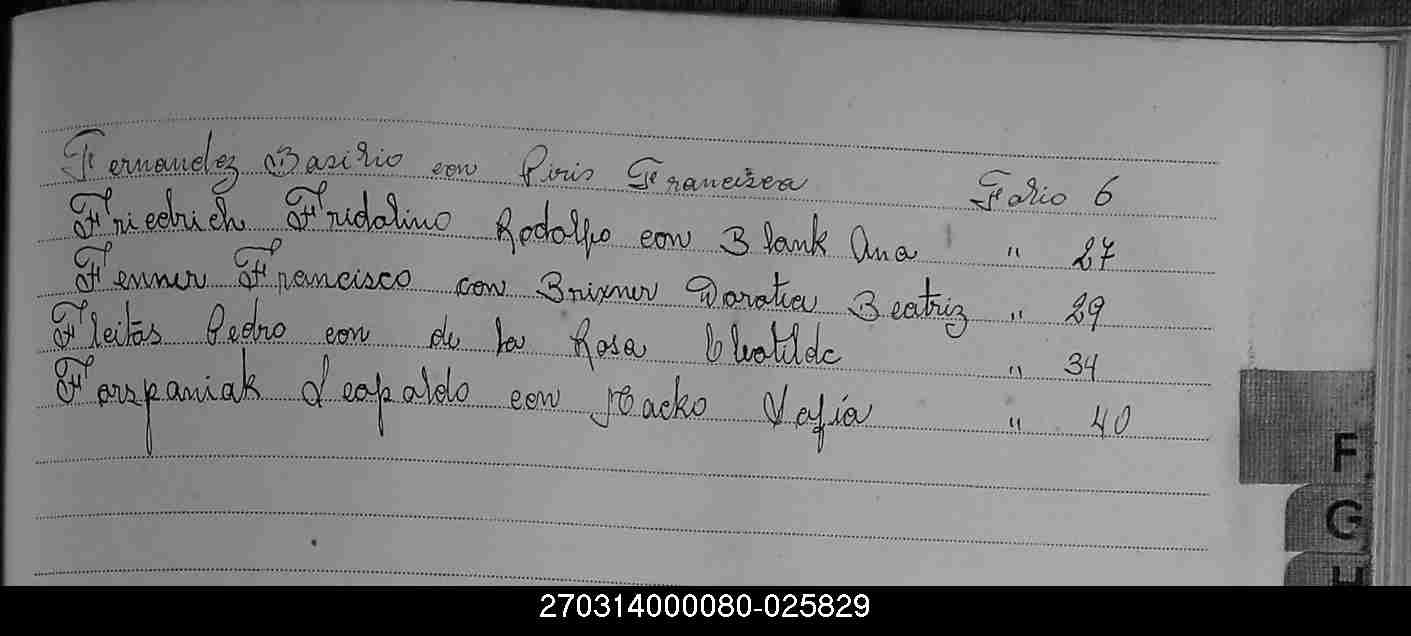 Fernandez Basilio con Piris Francisca Folio 6
Friedrich Fridolino Rodolfo con Blank Ana " 27
Fenner Francisco con Brixner Dorotea Beatriz " 29
Fleitas Pedro con de la Rosa Cleotilde " 34
Forspaniak Leopoldo con Macko Sofía " 40
F
G
H
270314000080-025829